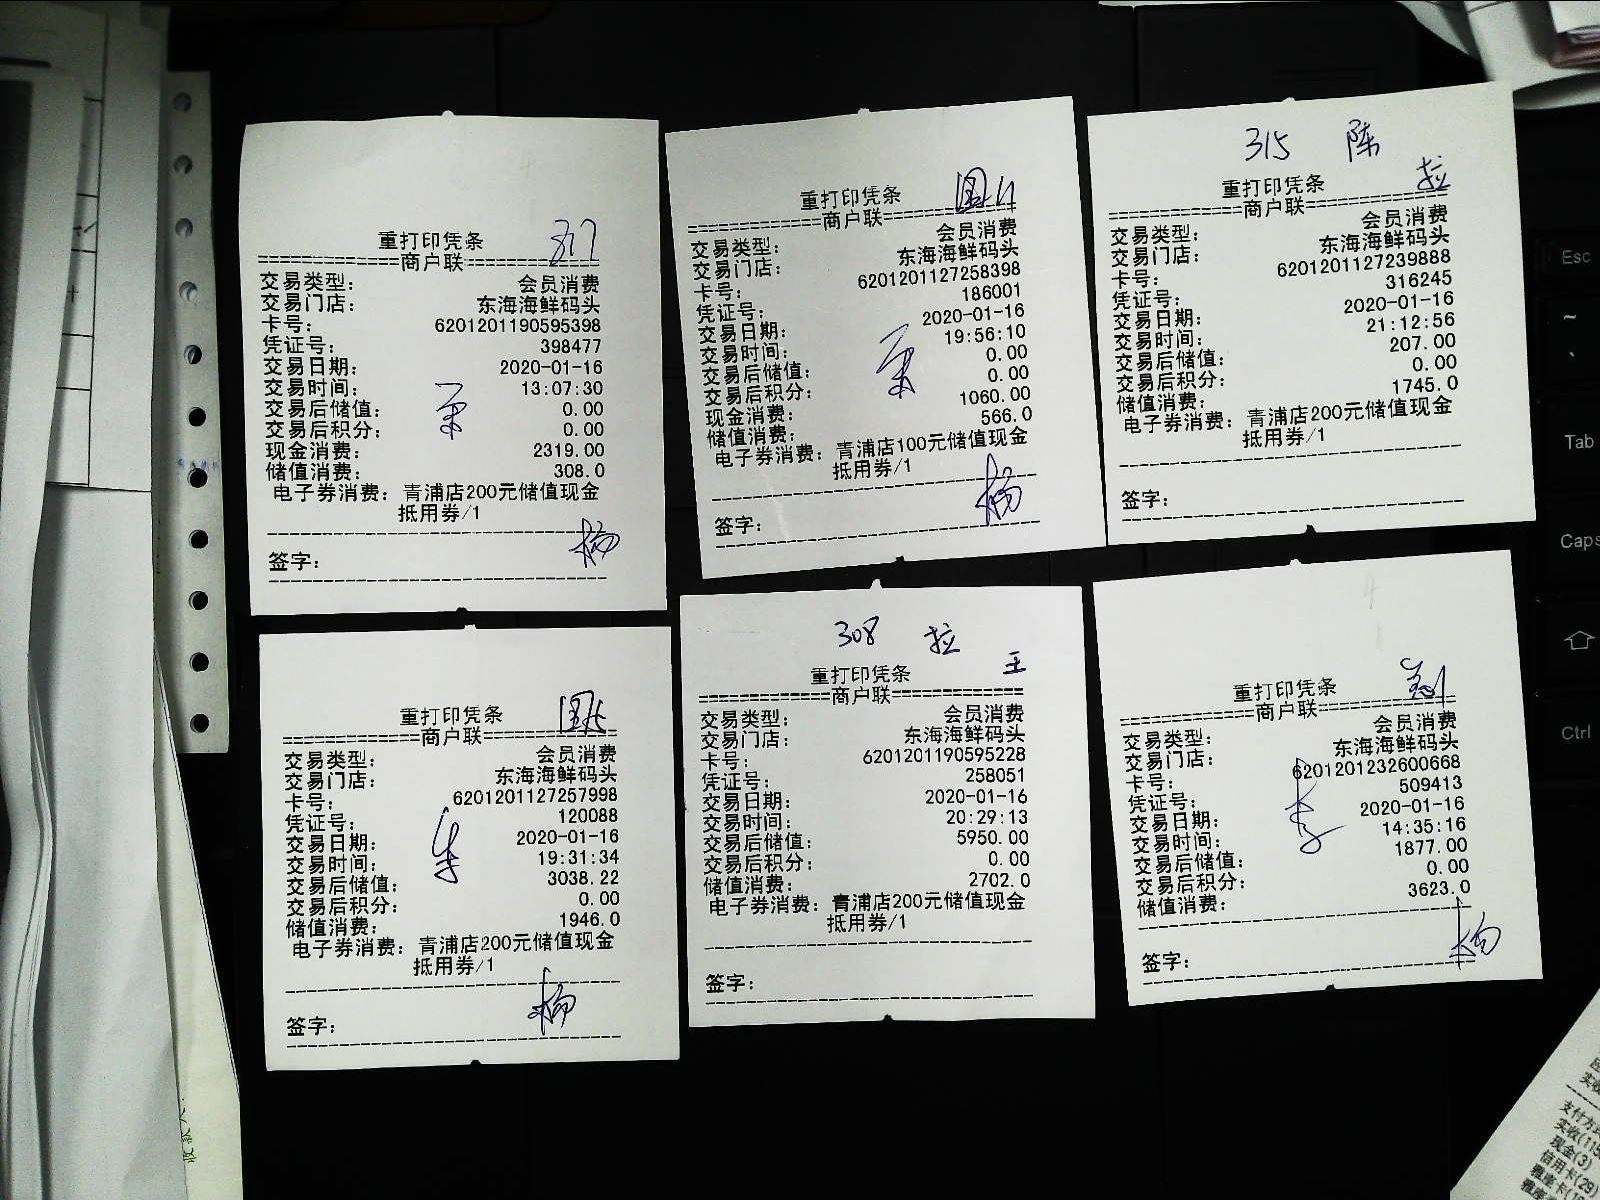 817
重打印凭条
=============商户联=============
交易类型: 会员消费
交易门店: 东海海鲜码头
卡号: 6201201190595398
凭证号: 398477
交易日期: 2020-01-16
交易时间: 13:07:30
交易后储值: 0.00
交易后积分: 0.00
现金消费: 2319.00
储值消费: 308.0
电子券消费: 青浦店200元储值现金
抵用券/1
签字: 杨
重打印凭条
=============商户联=============
交易类型: 会员消费
交易门店: 东海海鲜码头
卡号: 6201201127258398
凭证号: 186001
交易日期: 2020-01-16
交易时间: 19:56:10
交易后储值: 0.00
交易后积分: 0.00
现金消费: 1060.00
储值消费: 566.0
电子券消费: 青浦店100元储值现金
抵用券/1
签字: 杨
315 陈
拉
重打印凭条
=============商户联=============
交易类型: 会员消费
交易门店: 东海海鲜码头
卡号: 6201201127239888
凭证号: 316245
交易日期: 2020-01-16
交易时间: 21:12:56
交易后储值: 207.00
交易后积分: 0.00
储值消费: 1745.0
电子券消费: 青浦店200元储值现金
抵用券/1
签字:
重打印凭条
=============商户联=============
交易类型: 会员消费
交易门店: 东海海鲜码头
卡号: 6201201127257998
凭证号: 120088
交易日期: 2020-01-16
交易时间: 19:31:34
交易后储值: 3038.22
交易后积分: 0.00
储值消费: 1946.0
电子券消费: 青浦店200元储值现金
抵用券/1
签字: 杨
308 拉
王
重打印凭条
=============商户联=============
交易类型: 会员消费
交易门店: 东海海鲜码头
卡号: 6201201190595228
凭证号: 258051
交易日期: 2020-01-16
交易时间: 20:29:13
交易后储值: 5950.00
交易后积分: 0.00
储值消费: 2702.0
电子券消费: 青浦店200元储值现金
抵用券/1
签字:
重打印凭条
=============商户联=============
交易类型: 会员消费
交易门店: 东海海鲜码头
卡号: 6201201232600668
凭证号: 509413
交易日期: 2020-01-16
交易时间: 14:35:16
交易后储值: 1877.00
交易后积分: 0.00
储值消费: 3623.0
李
签字: 杨
Esc
~
Tab
Caps
Ctrl
现金(3)
信用卡(29)